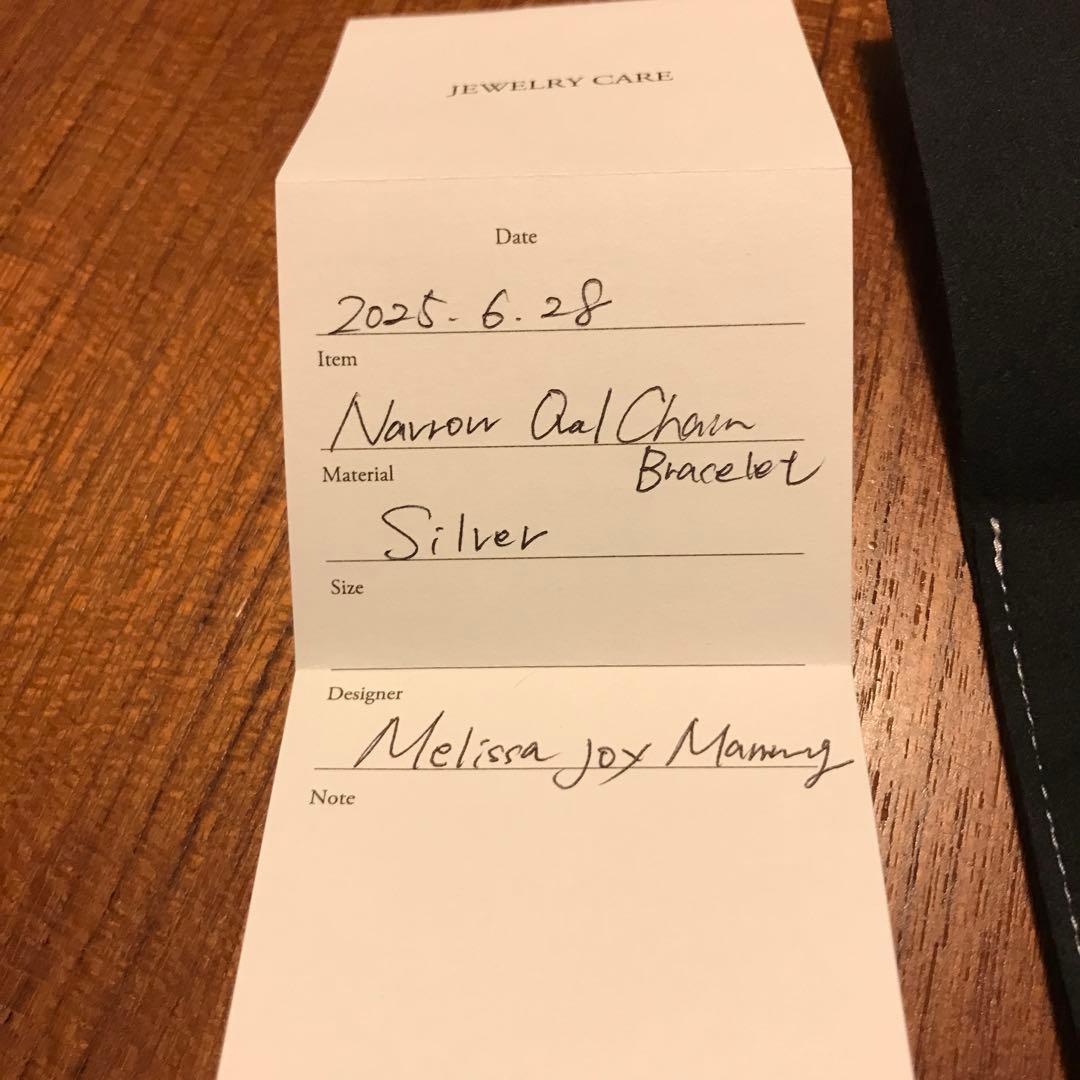 JEWELRY CARE
Date
2025. 6. 28
Item
Narrow Oval Chain
Bracelet
Material
Silver
Size
Designer
Melissa Joy Manning
Note